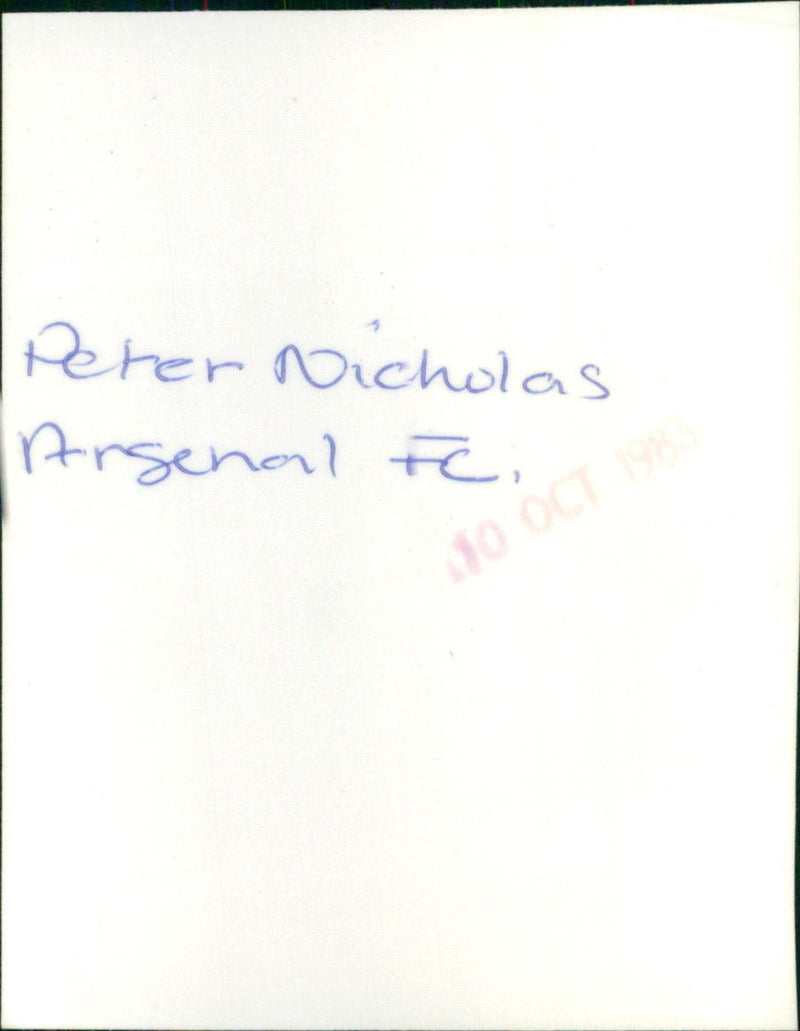 Peter Nicholas
Arsenal FC.
10 OCT 1983